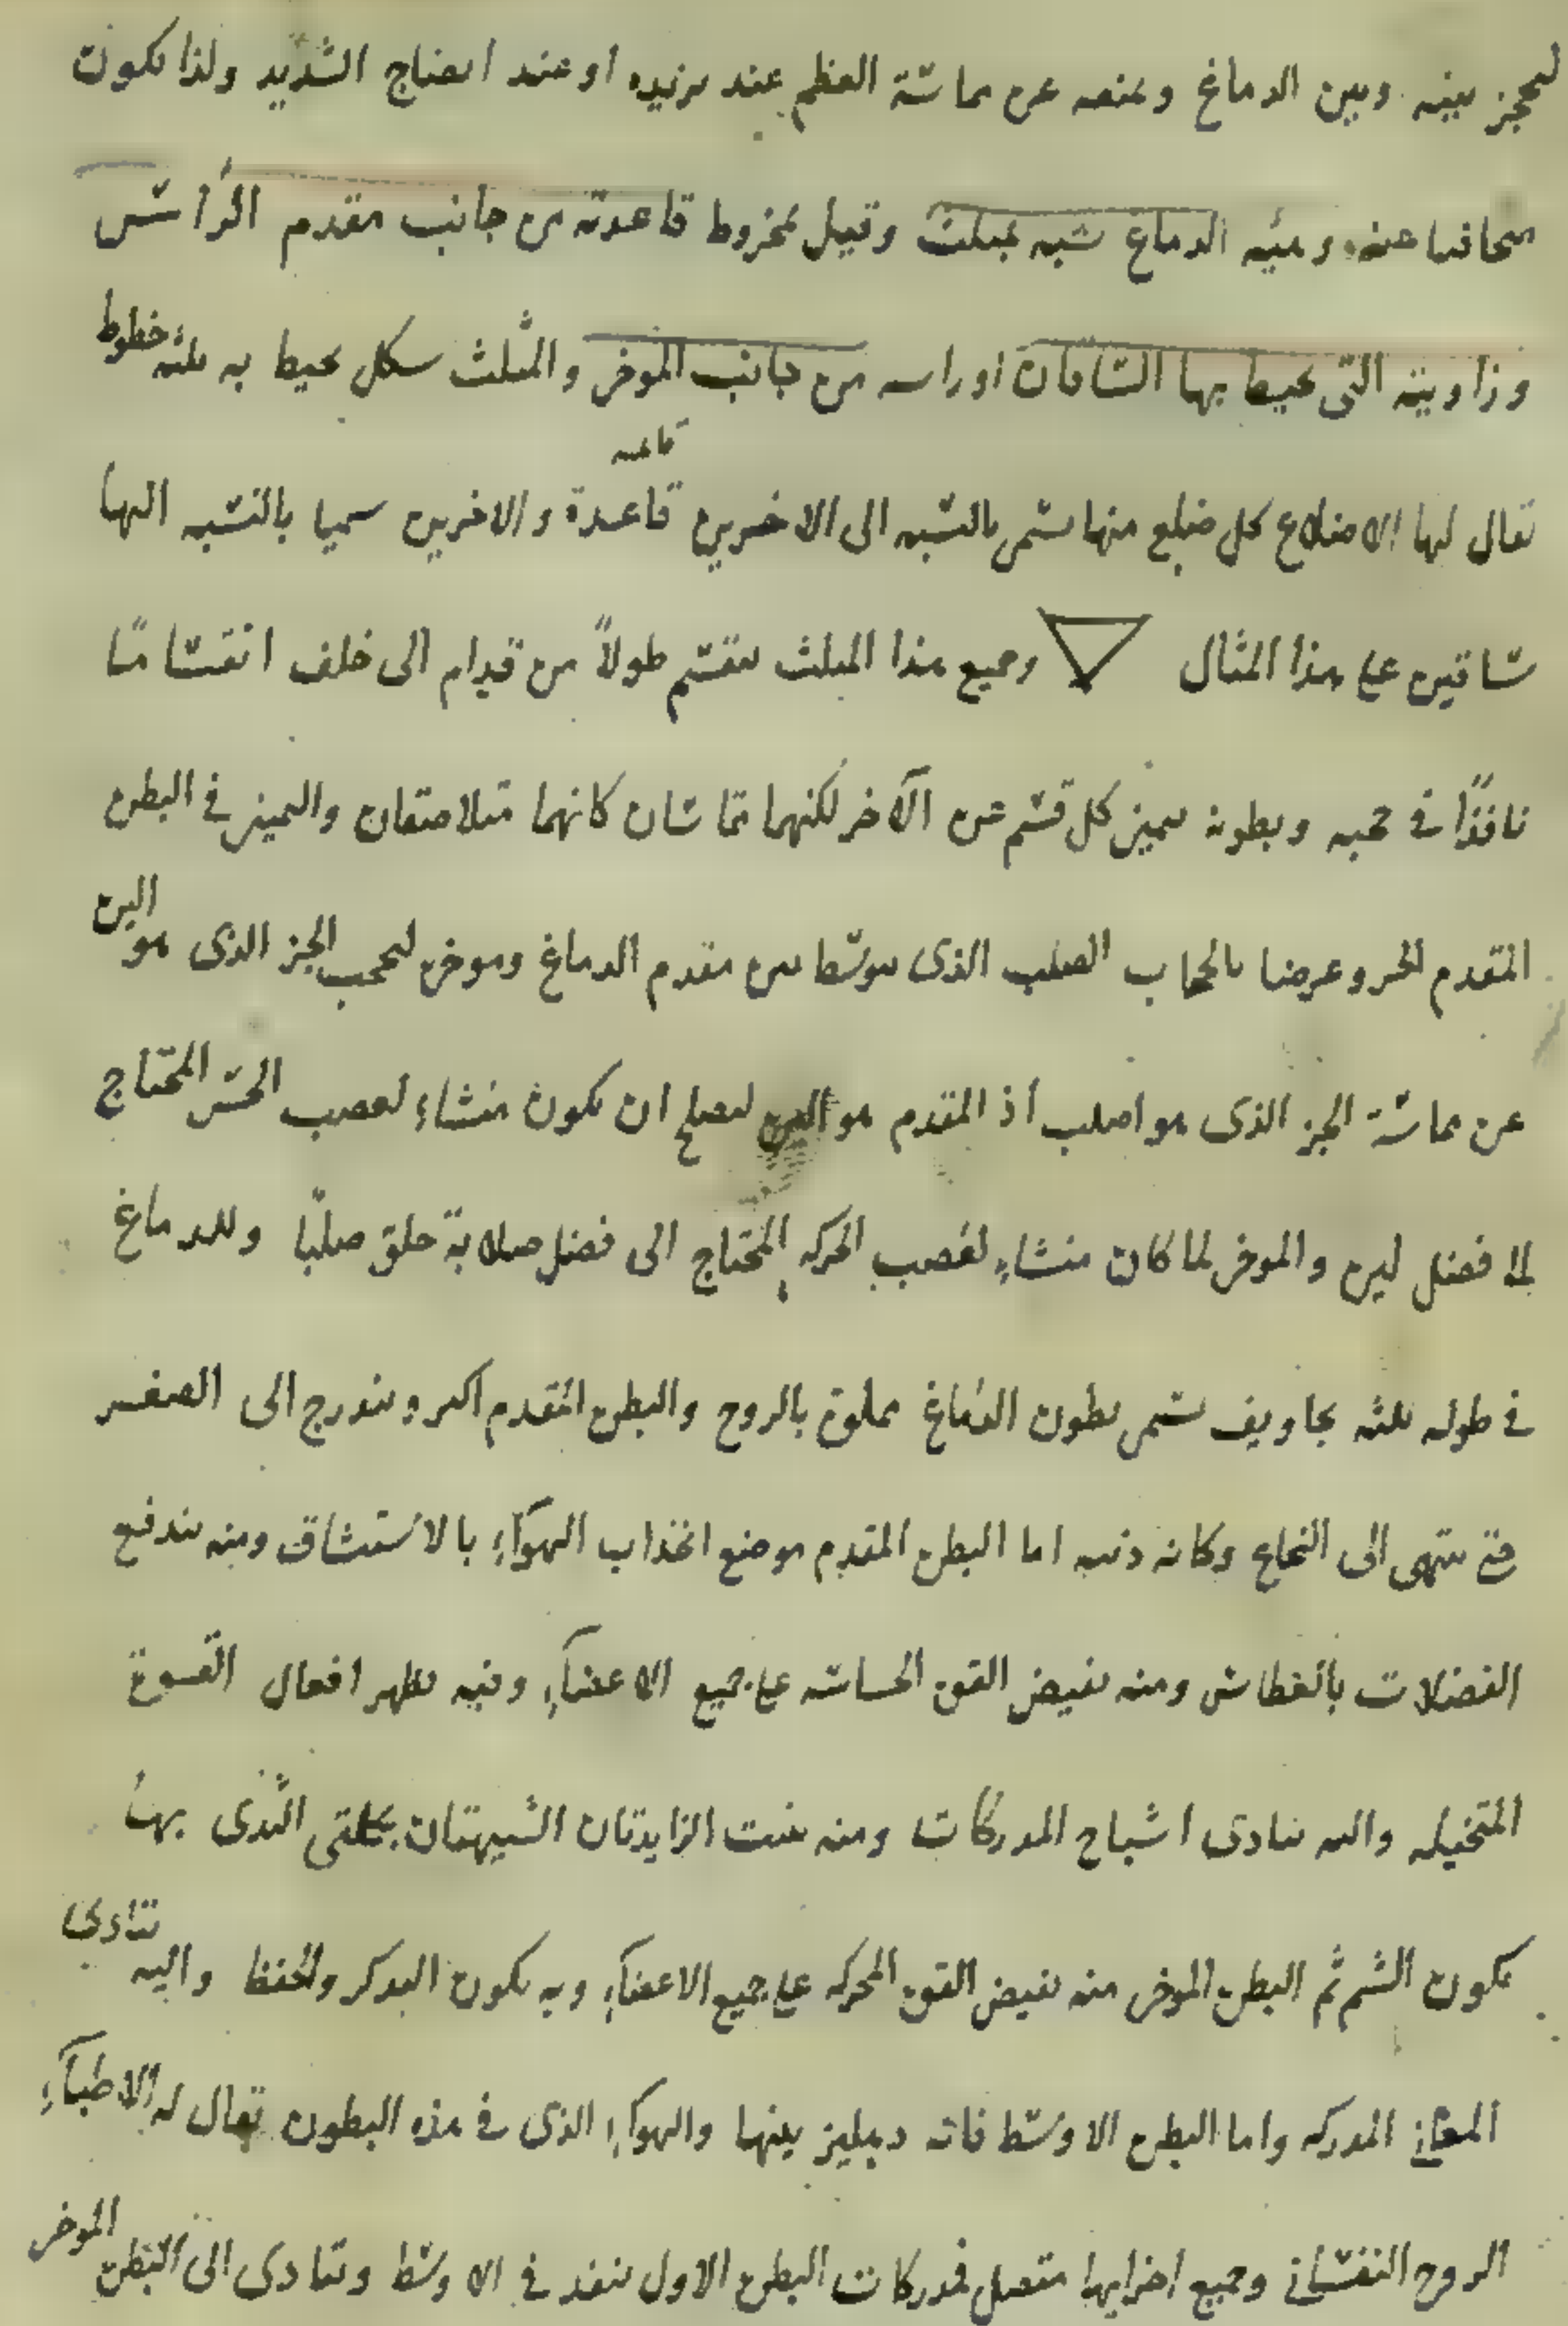 ليحجز بينه وبين الدماغ ويمنعه عن مماسّة العظم عند تزيده او عند انضاج الشديد ولذا يكون
متجافيا عنه وهيئه الدماغ شبه بمثلث وقيل بمخروط قاعدته من جانب مقدم الرأس
وزاويته التى يحيط بها الساقان اوراسه من جانب الموخر والمثلث شكل يحيط به ثلثه خطوط
يقال لها الاضلاع كل ضلع منها يسمى بالنسبه الى الاخرين قاعدة قاعده والاخرين سميا بالنسبه اليها
ساقين على هذا المثال وجميع هذا المثلث ينقسم طولاً من قدام الى خلف انقساما
نافذًا فى حجبه وبطونه يتميز كل قسم عن الآخر لكنهما تماسان كانهما متلاصقان والتميز فى البطن
المقدم اظهر وعرضا بالحجاب الصلب الذى يتوسط بين مقدم الدماغ وموخره ليحجب الجز الذى هو الين
عن مماسّة الجز الذى هو اصلب اذ المقدم هو الين ليصلح ان يكون منشاء لعصب الحس المحتاج
الى فضل لين والموخر لما كان منشاء لعصب الحركه المحتاج الى فضل صلابة خلق صلبًا وللدماغ
فى طوله ثلثه تجاويف يسمى بطون الدماغ مملوة بالروح والبطن المقدم اكبر ويتدرج الى الصغر
حتى ينتهى الى النخاع وكانه ذنبه اما البطن المقدم موضع انجذاب الهوآء بالاستنشاق ومنه يندفع
الفضلات بالعطاس ومنه يفيض القوة الحساسه على جميع الاعضآء وفيه يظهر افعال القوة
المتخيله واليه يتادى اشباح المدركات ومنه ينبت الزايدتان الشبيهتان بحلمتى الثدى بها
يكون الشم ثم البطن الموخر منه يفيض القوة المحركه على جميع الاعضآء وبه يكون التذكر والحفظ واليه يتادى
المعانى المدركه واما البطن الاوسط فانه دهليز بينها والهوآء الذى فى هذه البطون يقال له الاطبآء
الروح النفسانى وجميع اجزايها متصل فمدركات البطن الاول ينفذ فى الاوسط ويتادى الى البطن الموخر